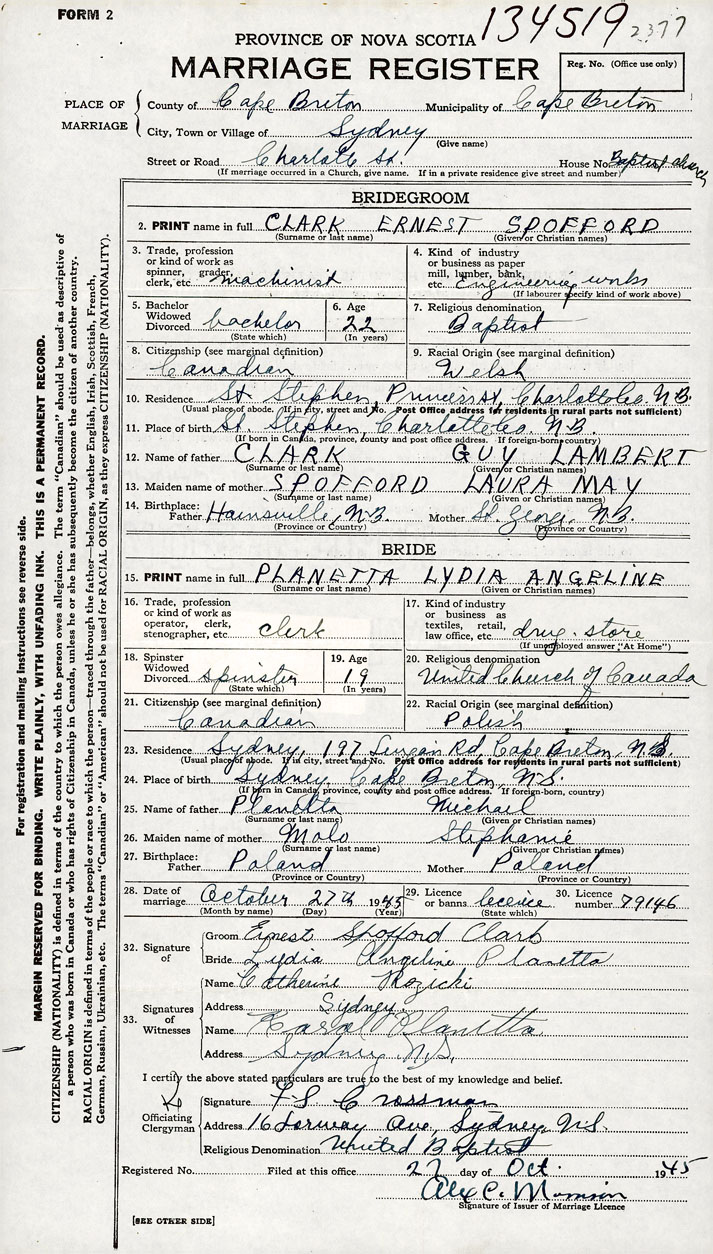 FORM 2
134519 2377
PROVINCE OF NOVA SCOTIA
MARRIAGE REGISTER
Reg. No. (Office use only)
PLACE OF MARRIAGE
County of Cape Breton Municipality of Cape Breton
City, Town or Village of Sydney
(Give name)
Street or Road Charlotte St. House No. Baptist Church
(If marriage occurred in a Church, give name. If in a private residence give street and number)
BRIDEGROOM
2. PRINT name in full CLARK ERNEST SPOFFORD
(Surname or last name) (Given or Christian names)
3. Trade, profession or kind of work as spinner, grader, clerk, etc. machinist
4. Kind of industry or business as paper mill, lumber, bank, etc. Engineering works
(If labourer specify kind of work above)
5. Bachelor Widowed Divorced bachelor
(State which)
6. Age 22
(In years)
7. Religious denomination
Baptist
8. Citizenship (see marginal definition)
Canadian
9. Racial Origin (see marginal definition)
Welsh
10. Residence St. Stephen, Princess St, Charlotte Co. N.B.
(Usual place of abode. If in city, street and No. Post Office address for residents in rural parts not sufficient)
11. Place of birth St. Stephen, Charlotte Co. N.B.
(If born in Canada, province, county and post office address. If foreign-born, country)
12. Name of father CLARK GUY LAMBERT
(Surname or last name) (Given or Christian names)
13. Maiden name of mother SPOFFORD LAURA MAY
(Surname or last name) (Given or Christian names)
14. Birthplace: Father Hainsville, N.B. Mother St. George, N.B.
(Province or Country) (Province or Country)
BRIDE
15. PRINT name in full PLANETTA LYDIA ANGELINE
(Surname or last name) (Given or Christian names)
16. Trade, profession or kind of work as operator, clerk, stenographer, etc. clerk
17. Kind of industry or business as textiles, retail, law office, etc. drug store
(If unemployed answer "At Home")
18. Spinster Widowed Divorced spinster
(State which)
19. Age 19
(In years)
20. Religious denomination
United Church of Canada
21. Citizenship (see marginal definition)
Canadian
22. Racial Origin (see marginal definition)
Polish
23. Residence Sydney, 197 Rd, Cape Breton, N.S.
(Usual place of abode. If in city, street and No. Post Office address for residents in rural parts not sufficient)
24. Place of birth Sydney, Cape Breton, N.S.
(If born in Canada, province, county and post office address. If foreign-born, country)
25. Name of father Planetta Michael
(Surname or last name) (Given or Christian names)
26. Maiden name of mother Molo Stephanie
(Surname or last name) (Given or Christian names)
27. Birthplace: Father Poland Mother Poland
(Province or Country) (Province or Country)
28. Date of marriage October 27th 1945
(Month by name) (Day) (Year)
29. Licence or banns licence
(State which)
30. Licence number 79146
32. Signature of
Groom Ernest Spofford Clark
Bride Lydia Angeline Planetta
33. Signatures of Witnesses
Name Catherine Rozicki
Address Sydney
Name Karol Planetta
Address Sydney N.S.
I certify the above stated particulars are true to the best of my knowledge and belief.
Officiating Clergyman
Signature F S Crossman
Address 16 Dorway Ave, Sydney, N.S.
Religious Denomination United Baptist
Registered No. Filed at this office 27 day of Oct. 1945
Alex C. Morrison
Signature of Issuer of Marriage Licence
[SEE OTHER SIDE]
For registration and mailing instructions see reverse side.
MARGIN RESERVED FOR BINDING. WRITE PLAINLY, WITH UNFADING INK. THIS IS A PERMANENT RECORD.
CITIZENSHIP (NATIONALITY) is defined in terms of the country to which the person owes allegiance. The term "Canadian" should be used as descriptive of
a person who was born in Canada or who has rights of Citizenship in Canada, unless he or she has subsequently become the citizen of another country.
RACIAL ORIGIN is defined in terms of the people or race to which the person—traced through the father—belongs, whether English, Irish, Scottish, French,
German, Russian, Ukrainian, etc. The terms "Canadian" or "American" should not be used for RACIAL ORIGIN, as they express CITIZENSHIP (NATIONALITY).